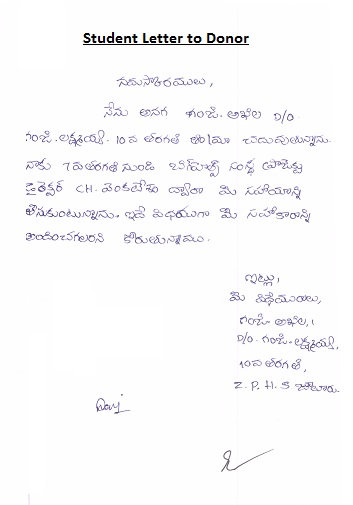 Student Letter to Donor
నమస్కారములు,
నేను అనగా గంజి. అఖిల D/O
గంజి. లక్ష్మయ్య. 10వ తరగతి చదువుతున్నాను.
నాకు 7వ తరగతి నుండి సంస్థ ప్రాజెక్టు
డైరెక్టర్ CH. వెంకటేశం ద్వారా మీ సహాయాన్ని
తీసుకుంటున్నాను. ఇదే విధముగా మీ సహాకారాన్ని
అందించగలరని కోరుతున్నాము.
ఇట్లు,
మీ విధేయురాలు,
గంజి అఖిల,
D/O. గంజి. లక్ష్మయ్య,
10వ తరగతి,
Z. P. H. S